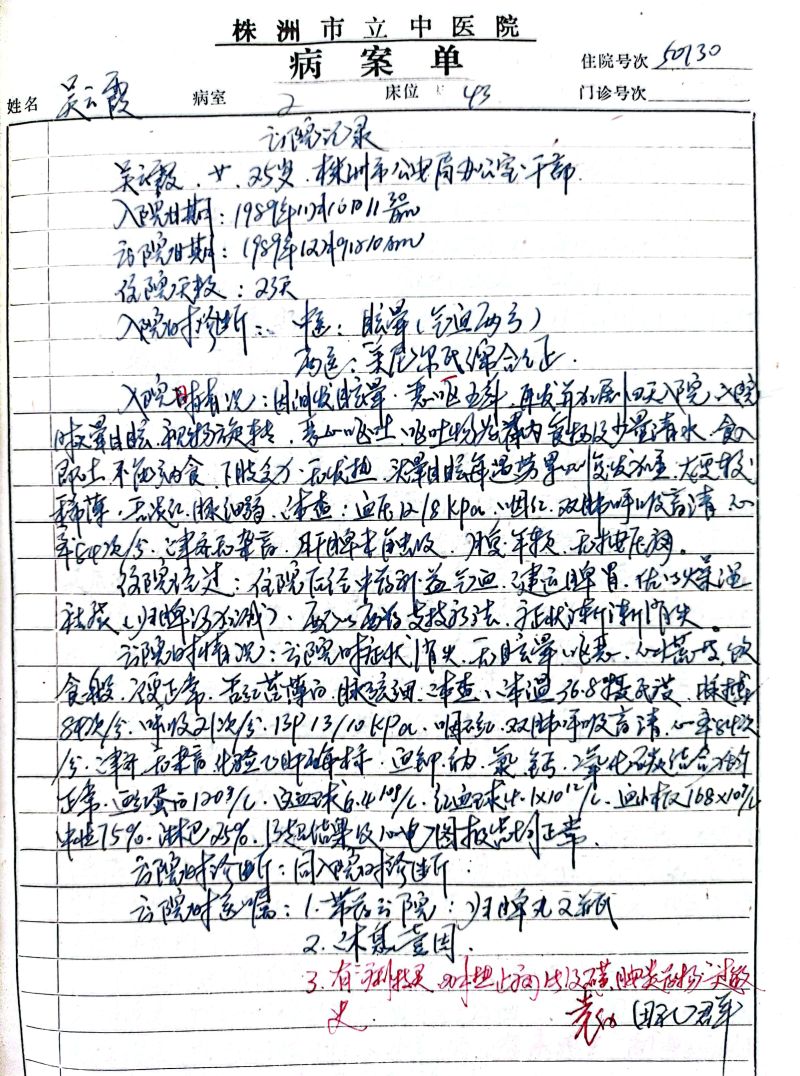 株洲市立中医院
病案单
住院号次 50130
姓名 吴云霞 病室 2 床位 43 门诊号次
出院记录
吴云霞、女、25岁、株洲市公安局办公室干部
入院日期：1989年11月16日11 30 am
出院日期：1989年12月9日10am
住院天数：23天
入院时诊断：中医：眩晕（气血两亏）
西医：美尼尔氏综合症
入院时情况：因 发眩晕、恶呕 再发并加剧四天入院，入院
时头晕目眩，视物旋转，恶心呕吐，呕吐物为胃内食物及少量清水，食入
即吐，不能纳食，下肢乏力，无发热，头晕目眩每遇劳累 发加重，大便较
稀薄，舌淡红，脉细弱。体查：血压12/8KPa，咽红，双肺呼吸音清，心
率84次/分，律齐无杂音，肝脾未触及，腹平软，无压痛。
住院经过：住院后经中药补益气血，健运脾胃，佐以燥湿
祛痰（归脾汤加减）、西医 支持疗法，症状渐渐消失。
出院时情况：出院时症状消失，无眩晕呕恶、心慌 ，饮
食 ，便正常，舌红苔薄白，脉弦细。体查：体温36.8摄氏度，脉搏
84次/分，呼吸21次/分，BP 13/10KPa，咽不红，双肺呼吸音清，心率84次
/分，律齐，无杂音，化验 ，血钾、钠、氯、钙、二氧化碳结合力
正常，血红蛋白120g/L，白血球6.4×10⁹/L，红血球4.1×10¹²/L，血小板168×10⁹/L
中性75%，淋巴25%，B超结果及心电图报告均正常。
出院时诊断：同入院时诊断
出院时医嘱：1. 带药出院：归脾丸 瓶
2. 休息壹周。
3. 有 对 止痛 及磺胺类药物过敏
史